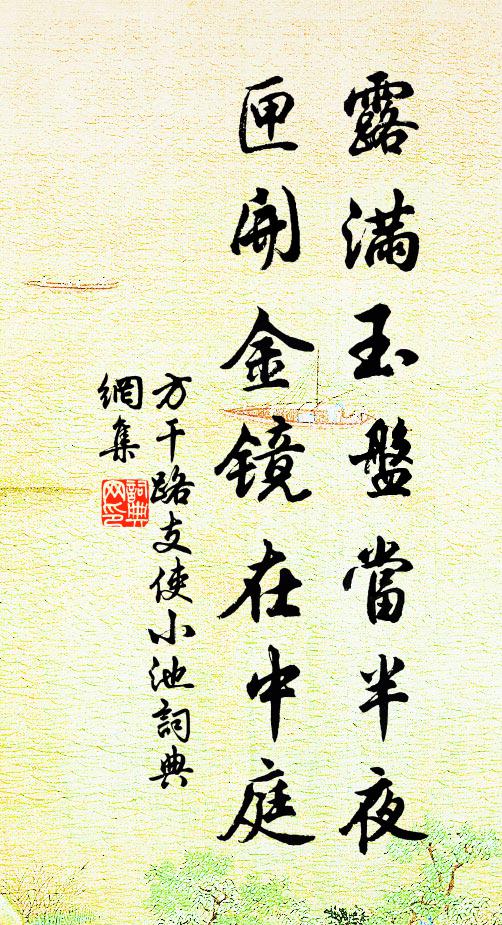 露滿玉盤當半夜
匣開金鏡在中庭
方干路支使小池詞典
網集
詞典网印